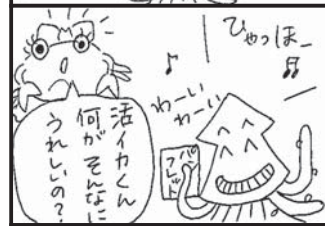 ひゃっほー
わーい
わーい
パン
フレット
活イカくん
何がそんなに
うれしいの?